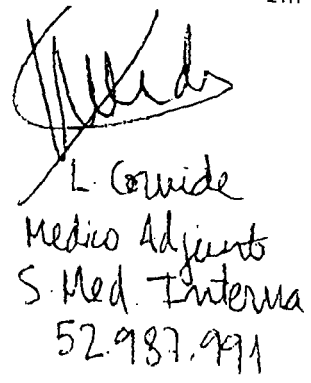 L. Corvide
Medico Adjunto
S. Med. Interna
52.987.991